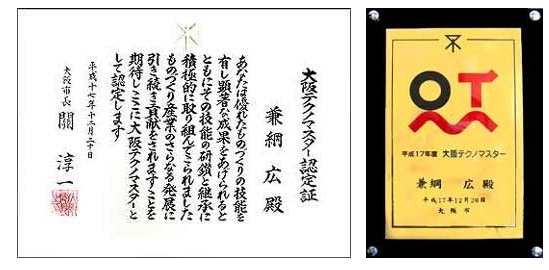 大阪テクノマスター認定証
兼綱 広 殿
あなたは優れたものづくりの技能を
有し顕著な成果をあげられると
ともにその技能の研鑽と継承に
積極的に取り組んでこられました
ものづくり産業のさらなる発展に
引き続き貢献をされますことを
期待しここに大阪テクノマスターと
して認定します
平成十七年十二月二十日
大阪市長 關 淳一
OT
平成17年度 大阪テクノマスター
兼綱 広 殿
平成17年12月20日
大阪市